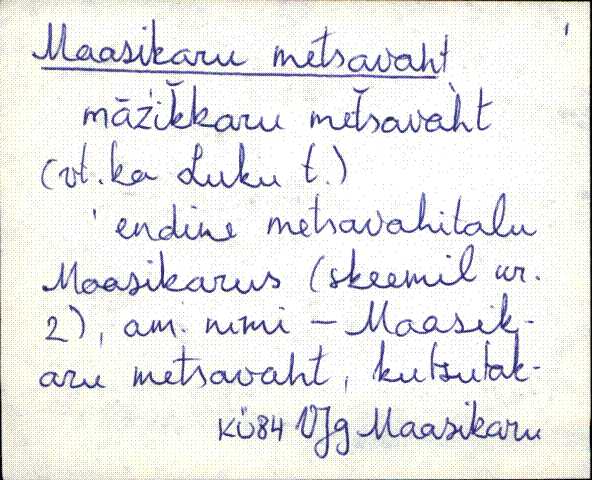 Maasikaru metsavaht
māžikkaru metsavaht
(vt. ka Luku t.)
endine metsavahitalu
Maasikarus (skeemil nr.
2), am. nimi – Maasik-
aru metsavaht, kutsutak-
KÜ84 VJg Maasikaru